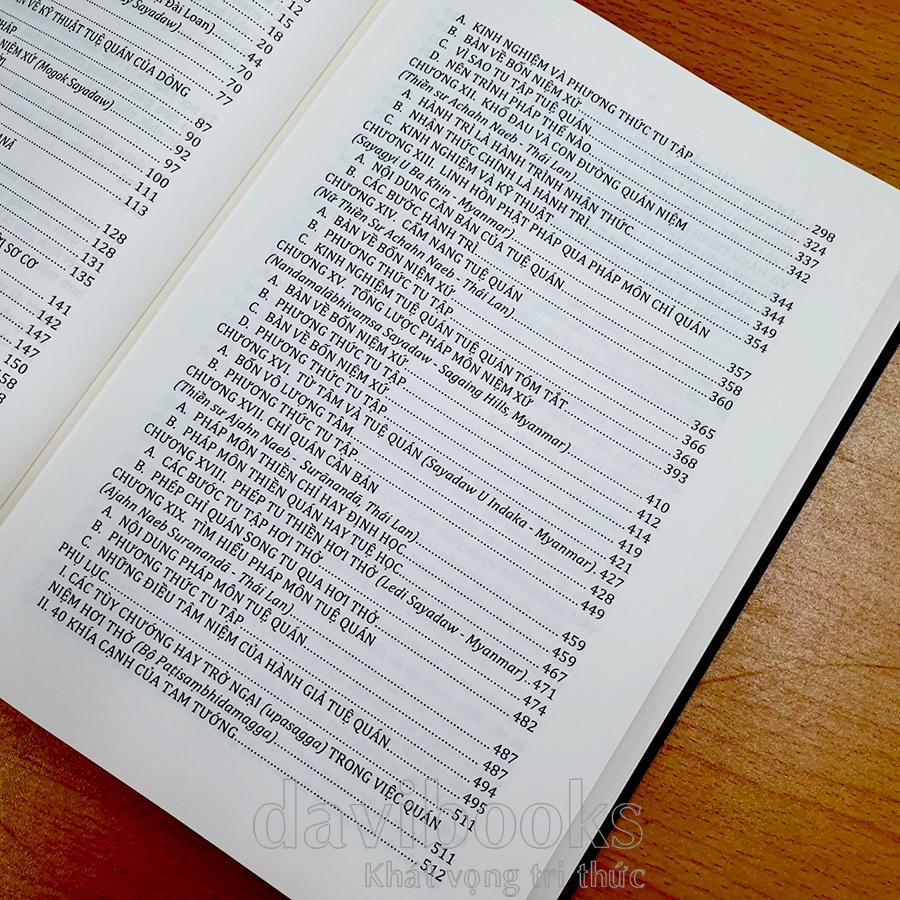 12
Đài Loan) 15
Sayadaw) 18
20
44
N VỀ KỸ THUẬT TUỆ QUÁN CỦA DÒNG 70
77
PHÁP
NIỆM XỨ (Mogok Sayadaw) 87
90
92
97
100
ANĀ 111
113
128
128
131
SƠ CƠ 135
141
142
147
147
150
158
A. KINH NGHIỆM VÀ PHƯƠNG THỨC TU TẬP 298
B. BÀN VỀ BỐN NIỆM XỨ 324
C. VÌ SAO TU TẬP TUỆ QUÁN 337
D. NÊN TRÌNH PHÁP THẾ NÀO 342
CHƯƠNG XII. KHỔ ĐAU VÀ CON ĐƯỜNG QUÁN NIỆM
(Thiền sư Achahn Naeb - Thái Lan) 344
A. HÀNH TRÌ LÀ HÀNH TRÌNH NHẬN THỨC 344
B. NHẬN THỨC CHÍNH LÀ HÀNH TRÌ 349
C. KINH NGHIỆM VÀ KỸ THUẬT 354
CHƯƠNG XIII. LINH HỒN PHẬT PHÁP QUA PHÁP MÔN CHỈ QUÁN
(Sayagyi U Ba Khin - Myanmar) 357
A. NỘI DUNG CĂN BẢN CỦA TUỆ QUÁN 358
B. CÁC BƯỚC HÀNH TRÌ 360
CHƯƠNG XIV. CẨM NANG TUỆ QUÁN
(Nữ Thiền Sư Achahn Naeb - Thái Lan) 365
A. BÀN VỀ BỐN NIỆM XỨ 366
B. PHƯƠNG THỨC TU TẬP 368
C. KINH NGHIỆM TUỆ QUÁN TUỆ QUÁN TÓM TẮT 393
CHƯƠNG XV. TỔNG LƯỢC PHÁP MÔN NIỆM XỨ
(Nandamalābhivaṃsa Sayadaw - Sagaing Hills, Myanmar) 410
A. BÀN VỀ BỐN NIỆM XỨ 412
B. PHƯƠNG THỨC TU TẬP 414
C. BÀN VỀ BỐN NIỆM XỨ 419
D. PHƯƠNG THỨC TU TẬP 421
CHƯƠNG XVI. TỪ TÂM VÀ TUỆ QUÁN (Sayadaw U Indaka - Myanmar) 427
A. BỐN VÔ LƯỢNG TÂM 428
B. PHƯƠNG THỨC TU TẬP 449
CHƯƠNG XVII. CHỈ QUÁN CĂN BẢN
(Thiền sư Ajahn Naeb - Suranandā, Thái Lan) 459
A. PHÁP MÔN THIỀN CHỈ HAY ĐỊNH HỌC 459
B. PHÁP MÔN THIỀN QUÁN HAY TUỆ HỌC 467
CHƯƠNG XVIII. PHÉP TU THIỀN HƠI THỞ (Ledi Sayadaw - Myanmar) 471
A. CÁC BƯỚC TU TẬP HƠI THỞ 474
B. PHÉP CHỈ QUÁN SONG TU QUA HƠI THỞ 482
CHƯƠNG XIX. TÌM HIỂU PHÁP MÔN TUỆ QUÁN
(Ajahn Naeb Suranandā - Thái Lan) 487
A. NỘI DUNG PHÁP MÔN TUỆ QUÁN 487
B. PHƯƠNG THỨC TU TẬP 494
C. NHỮNG ĐIỀU TÂM NIỆM CỦA HÀNH GIẢ TUỆ QUÁN 495
PHỤ LỤC 511
I. CÁC TÙY CHƯỚNG HAY TRỞ NGẠI (upasagga) TRONG VIỆC QUÁN
NIỆM HƠI THỞ (Bộ Patisambhidamagga) 511
II. 40 KHÍA CẠNH CỦA TAM TƯỚNG 512
davibooks
Khát vọng tri thức